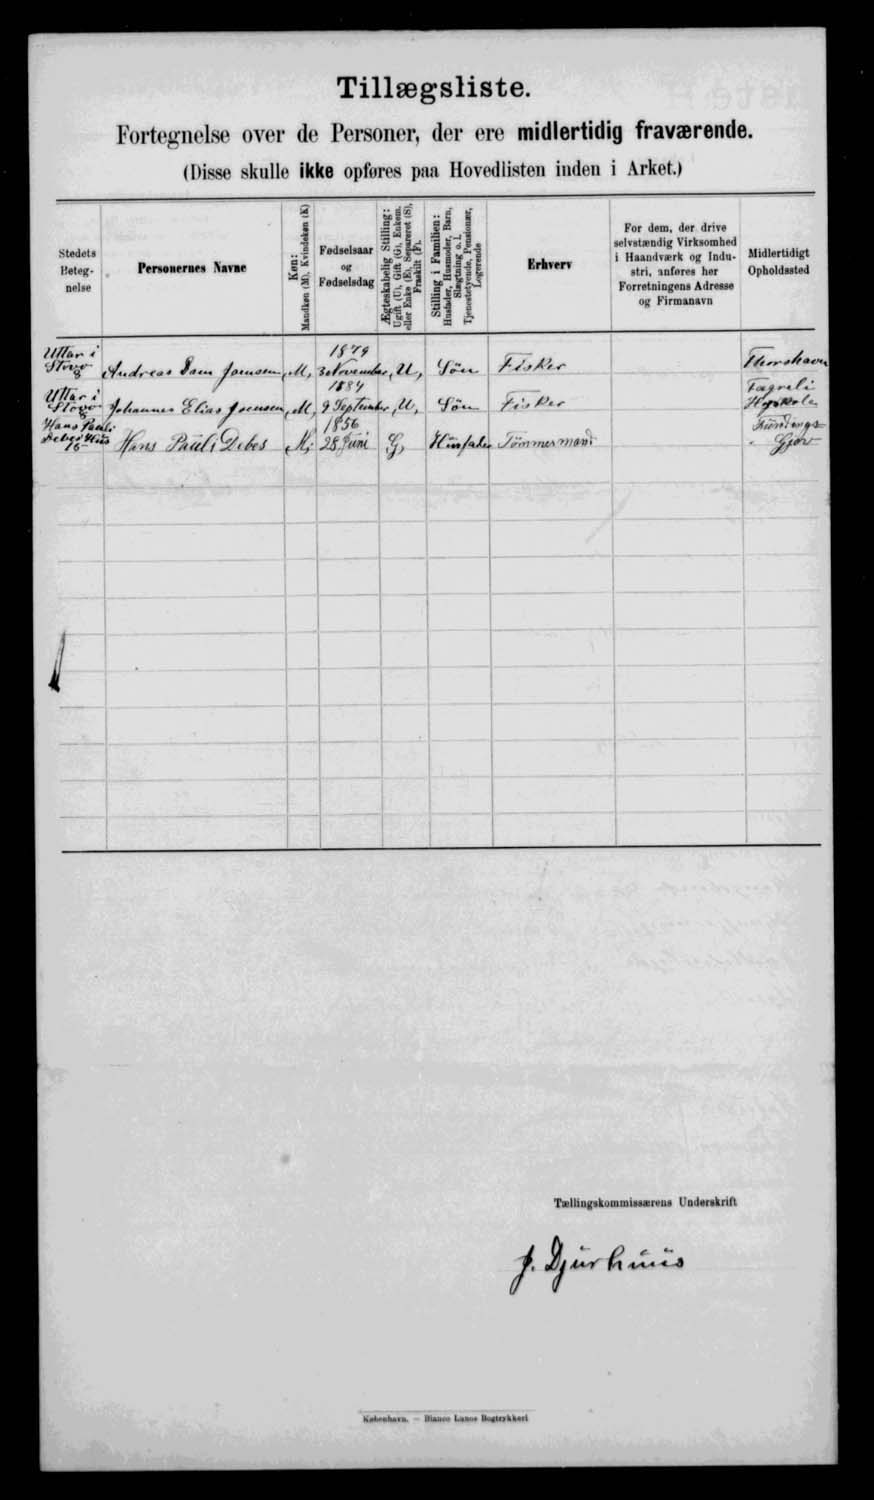 Tillægsliste.
Fortegnelse over de Personer, der ere midlertidig fraværende.
(Disse skulle ikke opføres paa Hovedlisten inden i Arket.)
Stedets
Beteg-
nelse
Personernes Navne
Køn:
Mandkøn (M), Kvindekøn (K)
Fødselsaar
og
Fødselsdag
Ægteskabelig Stilling:
Ugift (U), Gift (G), Enkem.
eller Enke (E), Separeret (S),
Fraskilt (F).
Stilling i Familien:
Husfader, Husmoder, Barn,
Slægtning o. l.
Tjenestetyende, Pensionær,
Logerende
Erhverv
For dem, der drive
selvstændig Virksomhed
i Haandværk og Indu-
stri, anføres her
Forretningens Adresse
og Firmanavn
Midlertidigt
Opholdssted
Uttar i
8
Andreas Dam Joensen, M, 1879 3 November, U, Søn Fisker Thorshavn
Uttar i
8
Johannes Elias Joensen, M, 1884 9 September, U, Søn Fisker
Hans Pauli
Debes Hus
Hans Pauli Debes M, 1856 28 Juni G, Husfader Tømmermand Fundings-
Gjov
Tællingskommissærens Underskrift
J. Djurhuus
København. — Bianco Lunos Bogtrykkeri